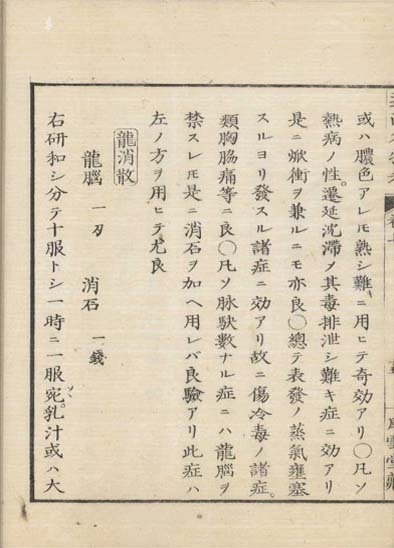 或ハ膿色アレ𪜈熟シ難ニ用ヒテ竒効アリ〇凡ソ
熱病ノ性。遷延沈滞〆其毒排泄シ難キ症ニ効アリ
是ニ焮衝ヲ兼ルニモ亦良〇總テ表發ノ蒸氣壅塞
スルヨリ發スル諸症ニ効アリ故ニ傷冷毒ノ諸症。
類胸脇痛等ニ良〇凡ソ脉駃數ナル症ニハ龍腦ヲ
禁スレ𪜈是ニ消石ヲ加ヘ用レバ良驗アリ此症ハ
左ノ方ヲ用ヒテ尤良
龍消散
龍腦 一刄 消石 一錢
右研和シ分テ十服トシ一時ニ一服宛。乳汁或ハ大